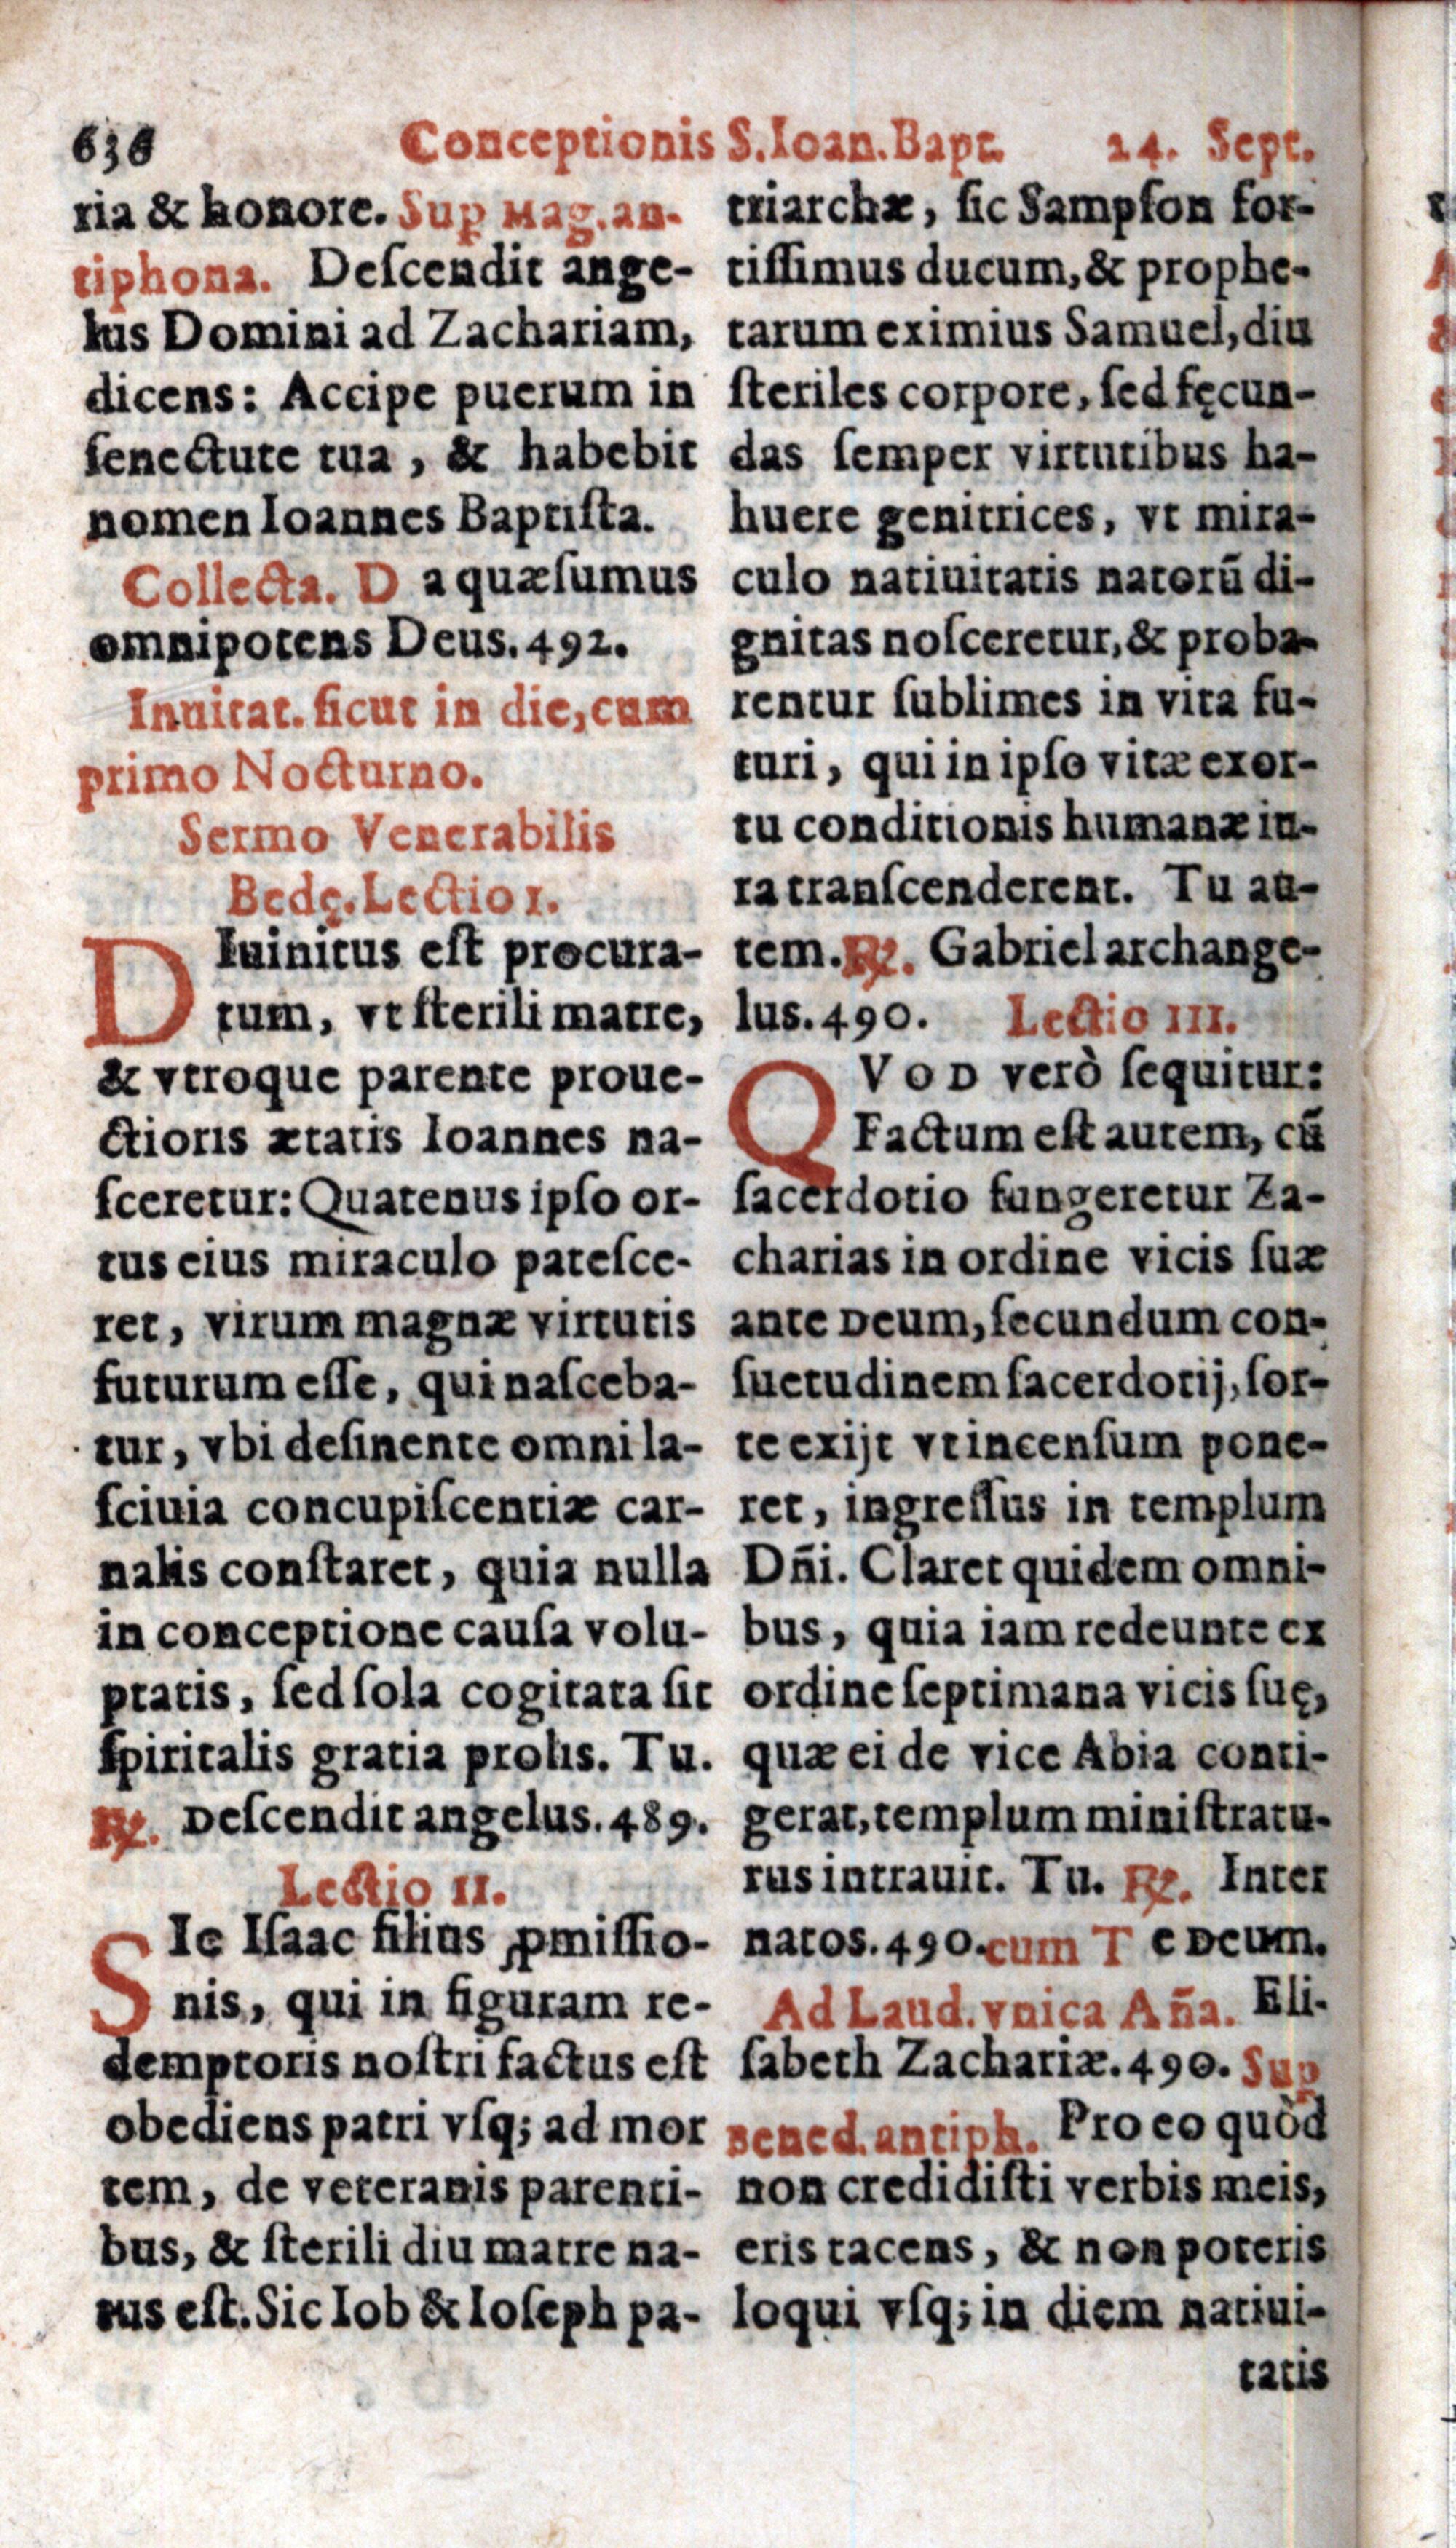 636 Conceptionis S. Ioan. Bapt. 24. Sept.
ria & honore. Sup Mag. an-
tiphona. Deſcendit ange-
lus Domini ad Zachariam,
dicens: Accipe puerum in
ſenectute tua, & habebit
nomen Ioannes Baptiſta.
Collecta. D a quæſumus
omnipotens Deus. 492.
Inuitat. ſicut in die, cum
primo Nocturno.
Sermo Venerabilis
Bedę. Lectio I.
DIuinitus eſt procura-
tum, vt ſterili matre,
& vtroque parente proue-
ctioris ætatis Ioannes na-
ſceretur: Quatenus ipſo or-
tus eius miraculo pateſce-
ret, virum magnæ virtutis
futurum eſſe, qui naſceba-
tur, vbi deſinente omni la-
ſciuia concupiſcentiæ car-
nalis conſtaret, quia nulla
in conceptione cauſa volu-
ptatis, ſed ſola cogitata ſit
ſpiritalis gratia prolis. Tu.
℟. Deſcendit angelus. 489.
Lectio II.
SIc Iſaac filius ꝓmiſſio-
nis, qui in figuram re-
demptoris noſtri factus eſt
obediens patri vſq; ad mor
tem, de veteranis parenti-
bus, & ſterili diu matre na-
tus eſt. Sic Iob & Ioſeph pa-
triarchæ, ſic Sampſon for-
tiſſimus ducum, & prophe-
tarum eximius Samuel, diu
ſteriles corpore, ſed fęcun-
das ſemper virtutibus ha-
buere genitrices, vt mira-
culo natiuitatis natorū di-
gnitas noſceretur, & proba-
rentur ſublimes in vita fu-
turi, qui in ipſo vitæ exor-
tu conditionis humanæ iu-
ra tranſcenderent. Tu au-
tem. ℟. Gabriel archange-
lus. 490. Lectio III.
QVOD verò ſequitur:
Factum eſt autem, cū
ſacerdotio fungeretur Za-
charias in ordine vicis ſuæ
ante Deum, ſecundum con-
ſuetudinem ſacerdotij, ſor-
te exijt vt incenſum pone-
ret, ingreſſus in templum
Dñi. Claret quidem omni-
bus, quia iam redeunte ex
ordine ſeptimana vicis ſuę,
quæ ei de vice Abia conti-
gerat, templum miniſtratu-
rus intrauit. Tu. ℟. Inter
natos. 490. cum T e Deum.
Ad Laud. vnica Aña. Eli-
ſabeth Zachariæ. 490. Sup
Bened. antiph. Pro eo quòd
non credidiſti verbis meis,
eris tacens, & non poteris
loqui vſq; in diem natiui-
tatis